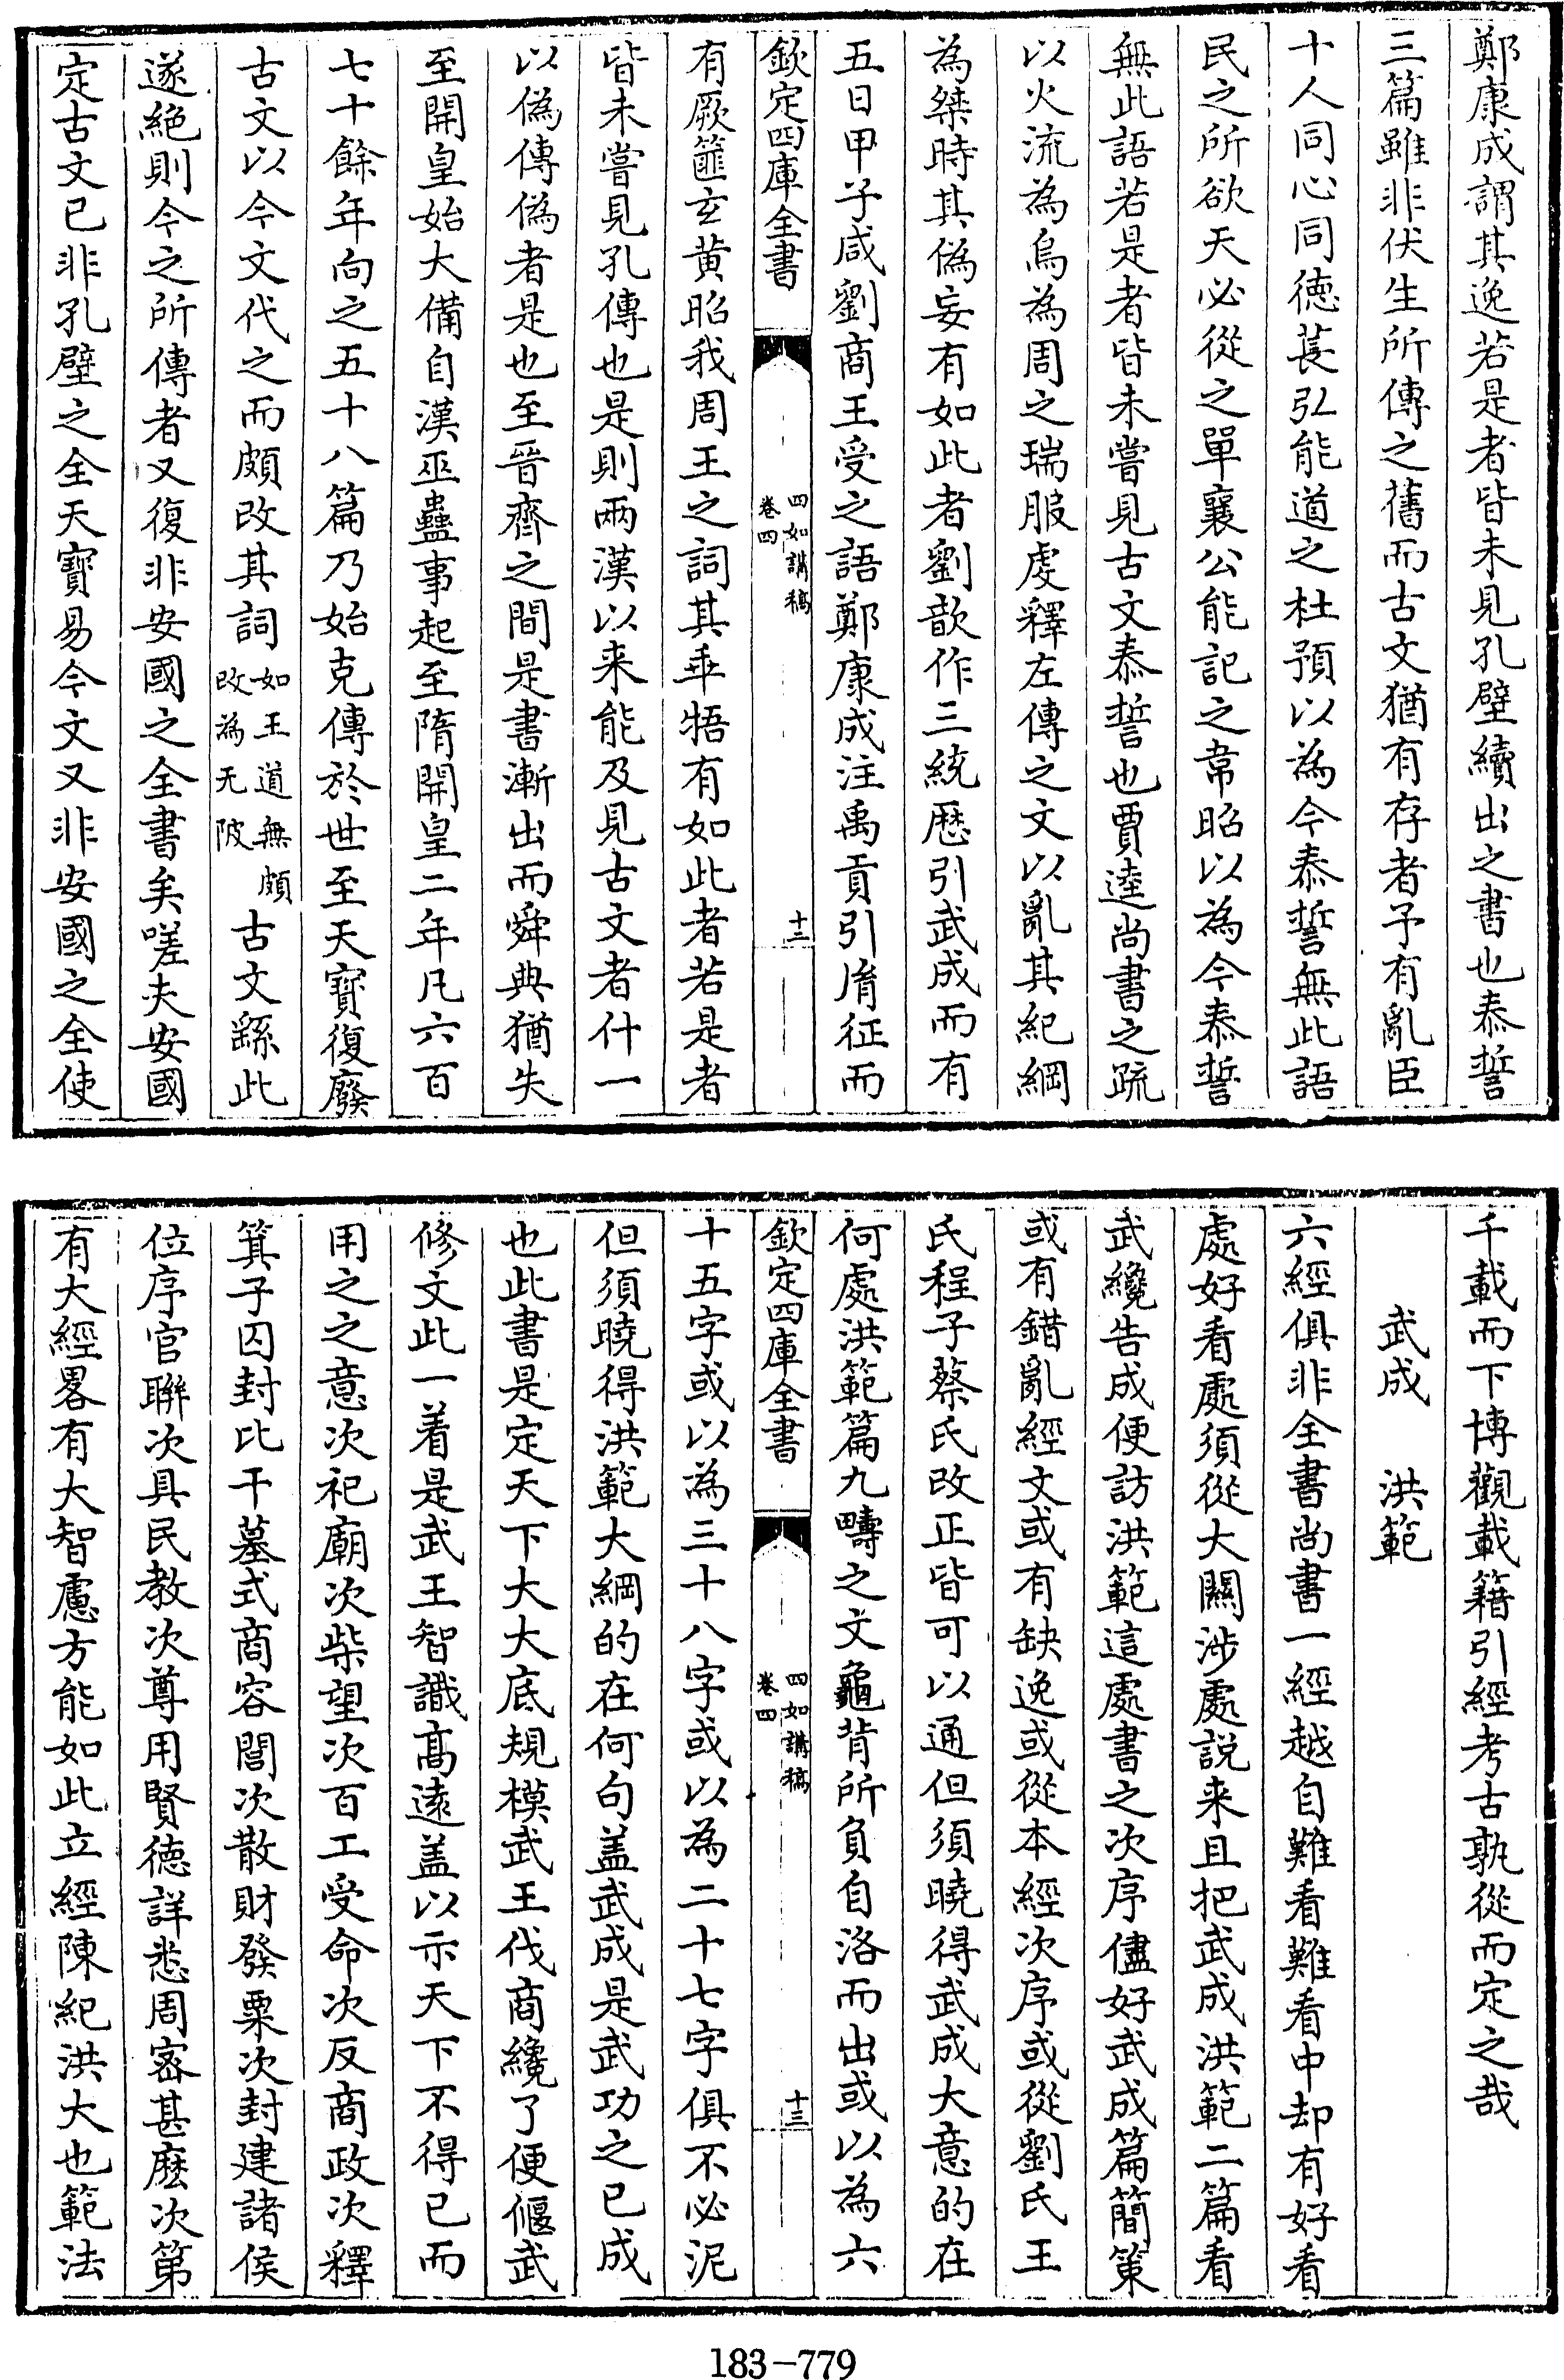 鄭康成謂其逸若是者皆未見孔壁續出之書也泰誓
三篇雖非伏生所傳之舊而古文猶有存者予有亂臣
十人同心同徳萇弘能道之杜預以為今泰誓無此語
民之所欲天必從之單襄公能記之韋昭以為今泰誓
無此語若是者皆未嘗見古文泰誓也賈逵尚書之疏
以火流為烏為周之瑞服䖍釋左傳之文以亂其紀綱
為桀時其偽妄有如此者劉歆作三統厯引武成而有
五日甲子咸劉商王受之語鄭康成注禹貢引胤征而
欽定四庫全書
四如講稿
卷四
十二
有厥篚玄黄昭我周王之詞其乖牾有如此者若是者
皆未嘗見孔傳也是則兩漢以来能及見古文者什一
以偽傳偽者是也至晉齊之間是書漸出而舜典猶失
至開皇始大備自漢巫蠱事起至隋開皇二年凡六百
七十餘年向之五十八篇乃始克傳於世至天寳復廢
古文以今文代之而頗改其詞如王道無頗改為无陂古文繇此
遂絶則今之所傳者又復非安國之全書矣嗟夫安國
定古文已非孔壁之全天寳易今文又非安國之全使
千載而下博觀載籍引經考古孰從而定之哉
武成　洪範
六經俱非全書尚書一經越自難看難看中却有好看
處好看處須從大關涉處説来且把武成洪範二篇看
武纔告成便訪洪範這處書之次序儘好武成篇簡䇿
或有錯亂經文或有缺逸或從本經次序或從劉氏王
氏程子蔡氏改正皆可以通但須曉得武成大意的在
何處洪範篇九疇之文龜背所負自洛而出或以為六
欽定四庫全書
四如講稿
卷四
十三
十五字或以為三十八字或以為二十七字俱不必泥
但須曉得洪範大綱的在何句盖武成是武功之已成
也此書是定天下大大底規模武王伐商纔了便偃武
修文此一着是武王智識髙逺盖以示天下不得已而
用之之意次祀廟次柴望次百工受命次反商政次釋
箕子囚封比干墓式商容閭次散財發粟次封建諸侯
位序官聯次具民教次尊用賢徳詳悉周宻甚麽次第
有大經畧有大智慮方能如此立經陳紀洪大也範法
183-779